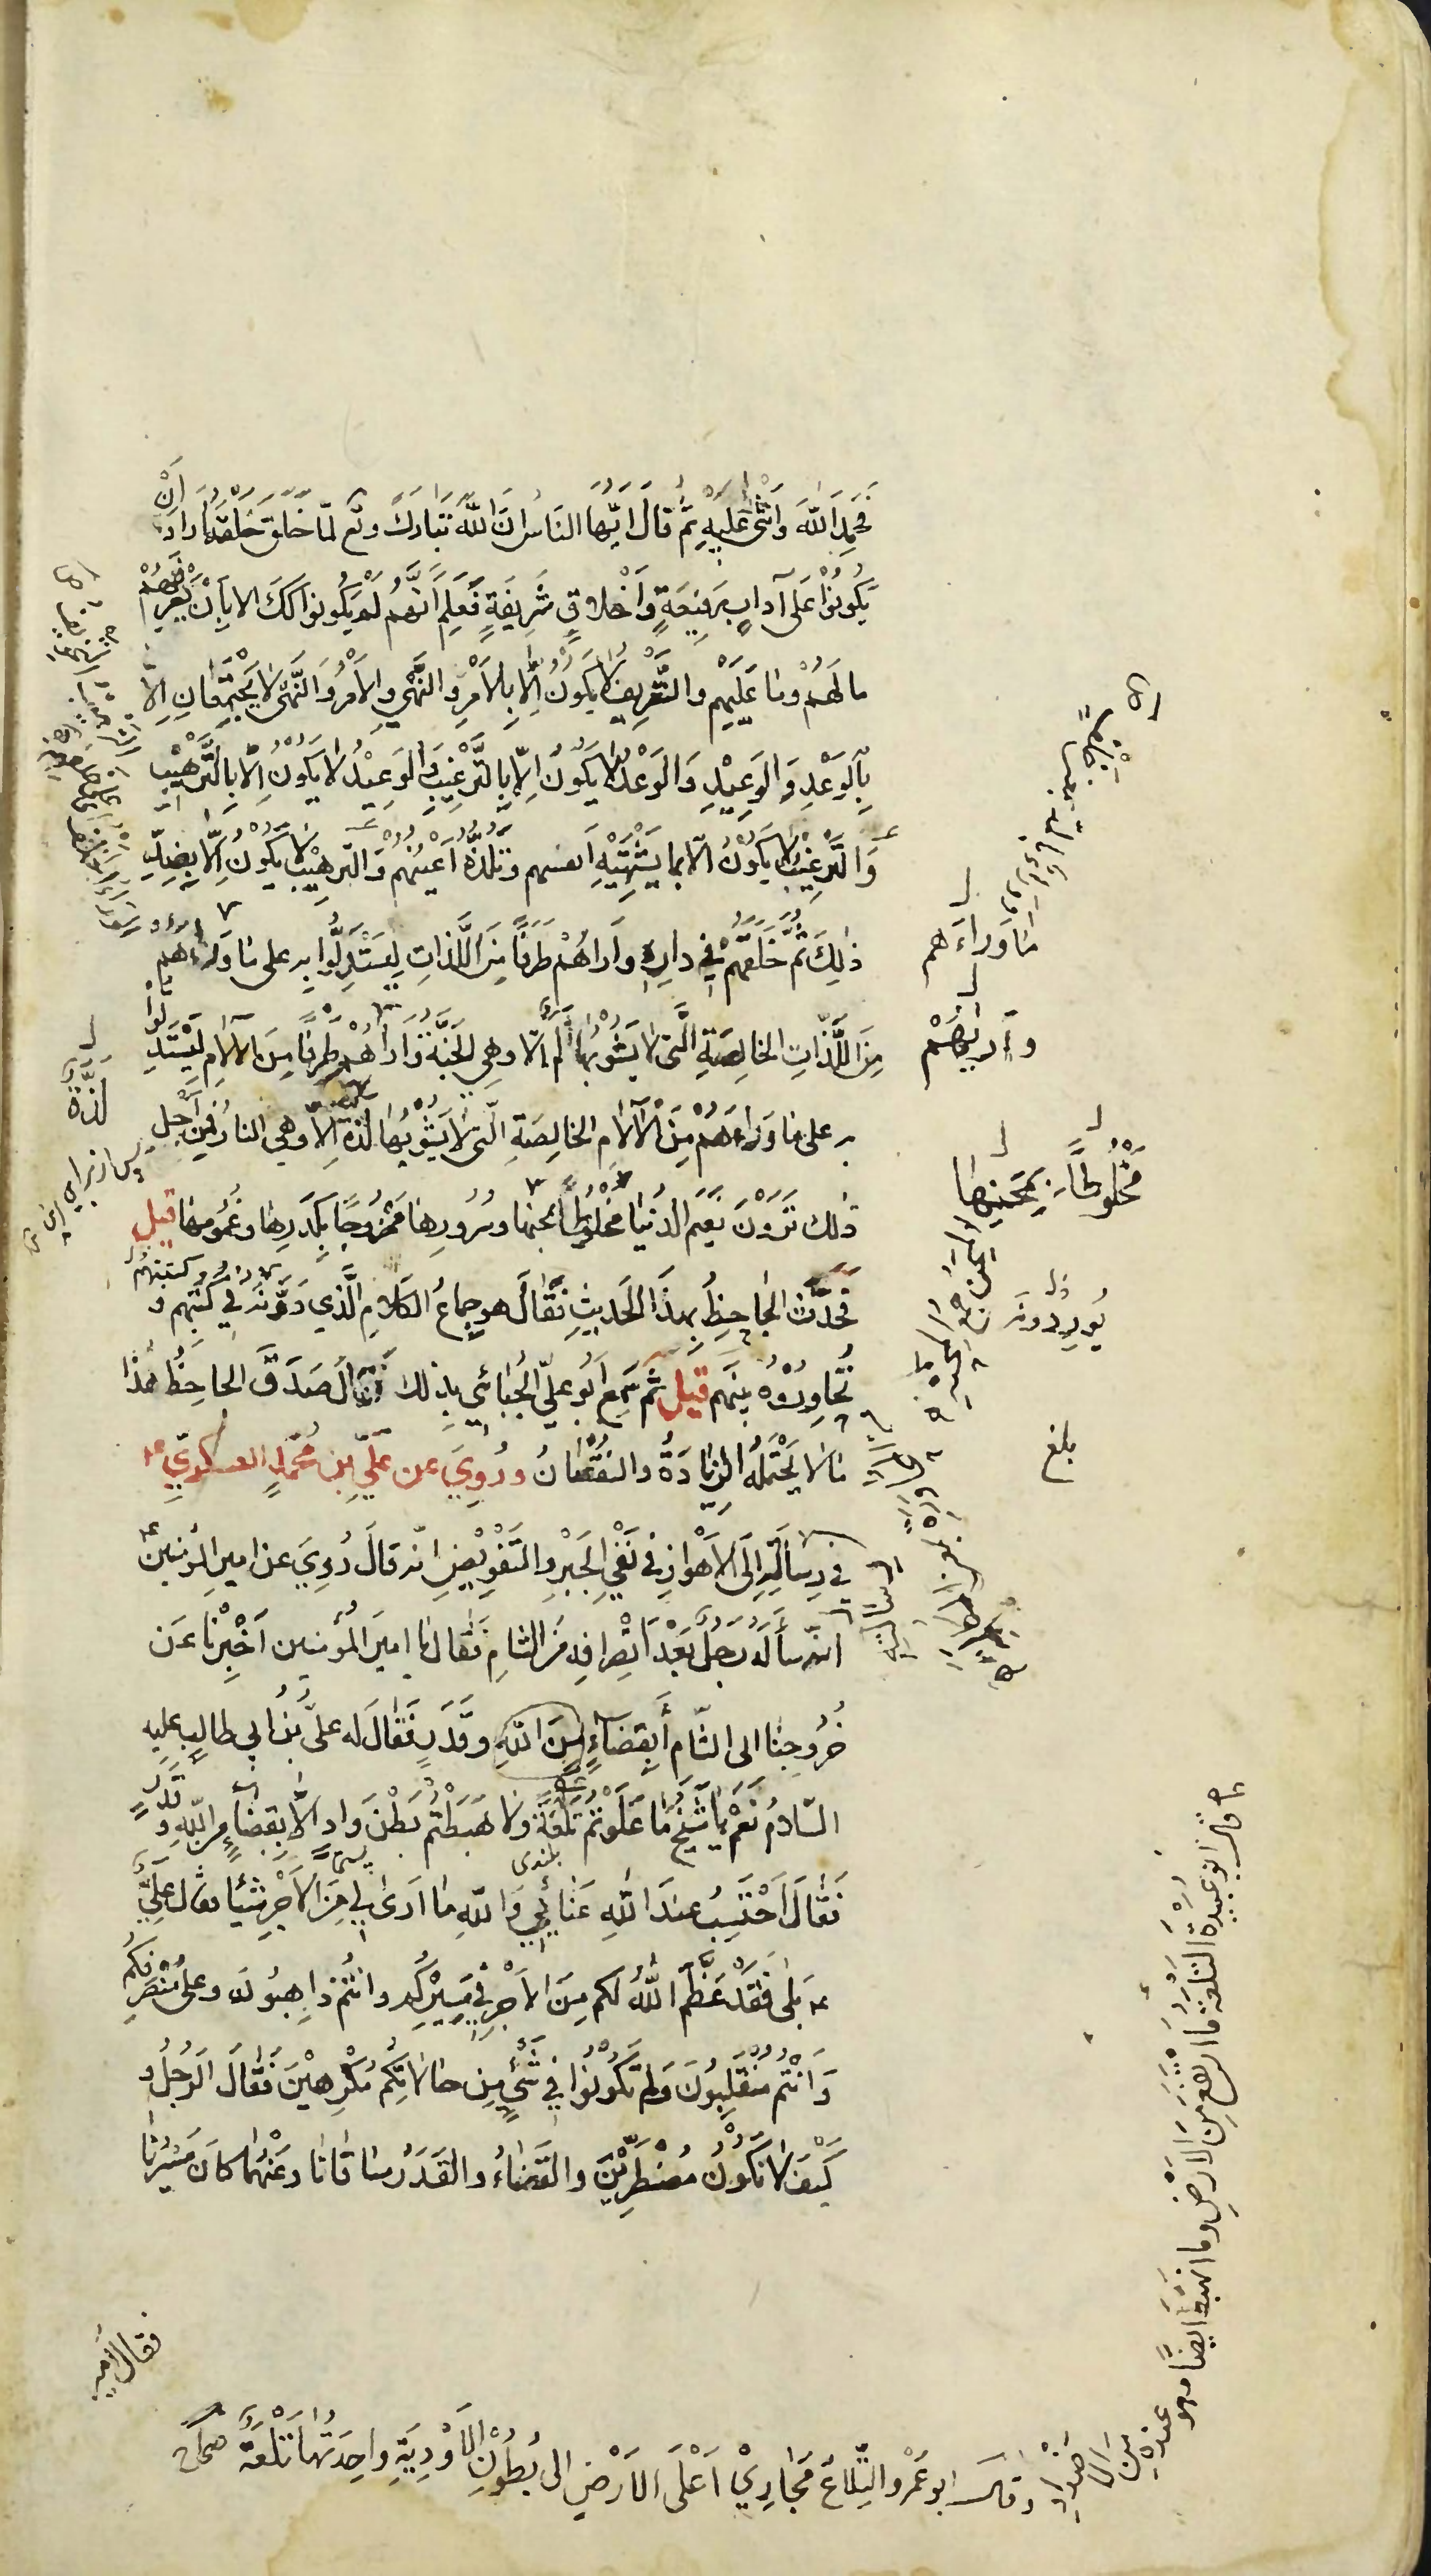 فَحَمِدَ اللّٰهَ وَاَثْنٰى عَلَيْهِ ثُمَّ قالَ ايّها النّاسُ انّ اللّٰهَ تَبارَكَ وتع لمّا خَلَقَ خَلْقَهُ اَرادَ اَنْ
يَكُونُوْا عَلٰى آدابٍ رَفيعَةٍ وَاَخْلاقٍ شَرِيفَةٍ فَعَلِمَ اَنَّهُم لَمْ يَكُونوا كَكَ الا بِاَنْ يُعَرِّفَهُمْ
ما لَهُمْ وما عَلَيْهِم والتَّعْرِيفُ لا يَكُونُ اِلّا بِالاَمْرِ والنَّهْيِ والاَمْرُ وَالنَّهْيُ لا يَجْتَمِعانِ اِلّا
بِالوَعْدِ وَالوَعِيْدِ وَالوَعْدُ لا يَكُونُ اِلّا بِالتَّرْغِيْبِ وَالوَعِيْدُ لا يَكُونُ اِلّا بِالتَّرْهِيْبِ
وَالتَّرغِيْبُ لا يَكُونُ الّا بما يَشْتَهِيْهِ اَنفسهم وتَلَذُّهُ اَعْيُنُهُمْ وَالتّرهِيْبُ لا يَكُونُ اِلّا بِضِدِّ
ذٰلِكَ ثُمَّ خَلَقَهُمْ فِي دارِهِ وَاَراهُمْ طَرَفًا مِنَ اللَّذّاتِ لِيَسْتَدِلُّوا به على ما وَراءَهُم
مِنَ اللَّذّاتِ الخالِصَةِ الَّتي لا يَشُوْبُها اَلَمٌ الا وهِي الجَنَّةُ وَاَراهُمْ طَرفًا مِنَ الآلامِ لِيَسْتَدِلُّوا
به على ما وَراءَهُمْ مِنَ الآلام الخالِصَةِ الّتي لا يَشُوْبُها لَذَّةٌ اِلّا وهي النارُ فَمِنْ اَجْلِ
ذٰلك تَرَوْنَ نَعيمَ الدُنْيا مَخْلُوطًا بمحنها وسُرُورها مَمْزُوجًا بِكَدَرِها وغُمُومِها قيل
فحَدَّثَ الجاحِظُ بهذَا الحَديثِ فَقالَ هو جِماعُ الكَلامِ الَّذي دَوَّنَهُ في كُتُبِهِم و
تُحاوِرُوْهُ بَينَهم قيل ثُم سَمِعَ اَبُو عَلِيّ الجُبّائي بذلك فقالَ صَدَقَ الجاحِظُ هٰذا
مَا لا يَحْتَمِلُهُ الزِّيادَةُ والنُقْصانُ ورُوِيَ عن عَلِيِّ بنِ مُحَمَّدٍ العسكريّ ع
في رِسالَتِهِ اِلَى الاَهْوازِ في نَفْيِ الجَبْرِ والتَّفْوِيْضِ انّه قالَ رُوِيَ عن اميرِ المؤمنينَ ع
انّه سأَلَهُ رَجُلٌ بَعْدَ اِنْصِرافِهِ مِنَ الشامِ فَقالَ يا اميرَ المؤمنين اَخْبِرْنا عَن
خُرُوجِنا الى الشّام أَبِقَضاءٍ مِنَ اللّٰهِ وقَدَرٍ فَقالَ له عليُّ بنُ ابي طالِبٍ عليه
السّلامُ نَعَمْ يا شَيْخُ ما عَلَوْتُمْ تَلْعَةً ولا هَبَطْتُم بَطْنَ وادٍ الّا بِقَضاءٍ مِنَ اللّٰهِ وقَدَرٍ
فَقالَ اَحْتَسِبُ عندَ اللّٰهِ عَنائِي وَاللّٰهِ ما اَرىٰ لِي مِنَ الاَجْرِ شَيْئًا فقالَ عَلِيٌّ
ع بَلى فَقَدْ عَظَّمَ اللّٰهُ لكم مِنَ الاَجْرِ في مَسِيْرِكُم وانْتُمْ ذاهِبُونَ وعلى مُنْصَرَفِكُم
وَاَنْتُم مُنْقَلِبُونَ وَلم تَكُوْنُوا فِي شَيْءٍ مِن حالاتِكُم مُكْرَهِيْنَ فَقالَ الرَجُلُ و
كَيْفَ لا نَكُونُ مُضْطَرِّيْنَ والقَضاءُ والقَدَرُ ساقانا وعَنْهُما كانَ مَسِيْرُنا
فقال الامير
ما وَراءَهم
وَاَرىٰهُمْ
مَخْلُوطًا بِمِحَنِها
يُورِدُونَه
بلغ
لَذَّةٌ
بلندى
قالَ ابو عبيدة التَلْعَةُ ما ارْتَفَعَ مِنَ الاَرْضِ وما انهَبَطَ ايضًا وهو عنده مِن الاَضْداد
وقالَ ابو عَمْرو التِّلاعُ مَجارِيْ اَعْلَى الاَرْضِ الى بُطُوْنِ الاَوْدِيَةِ واحِدَتُها تَلْعَةٌ صحاح